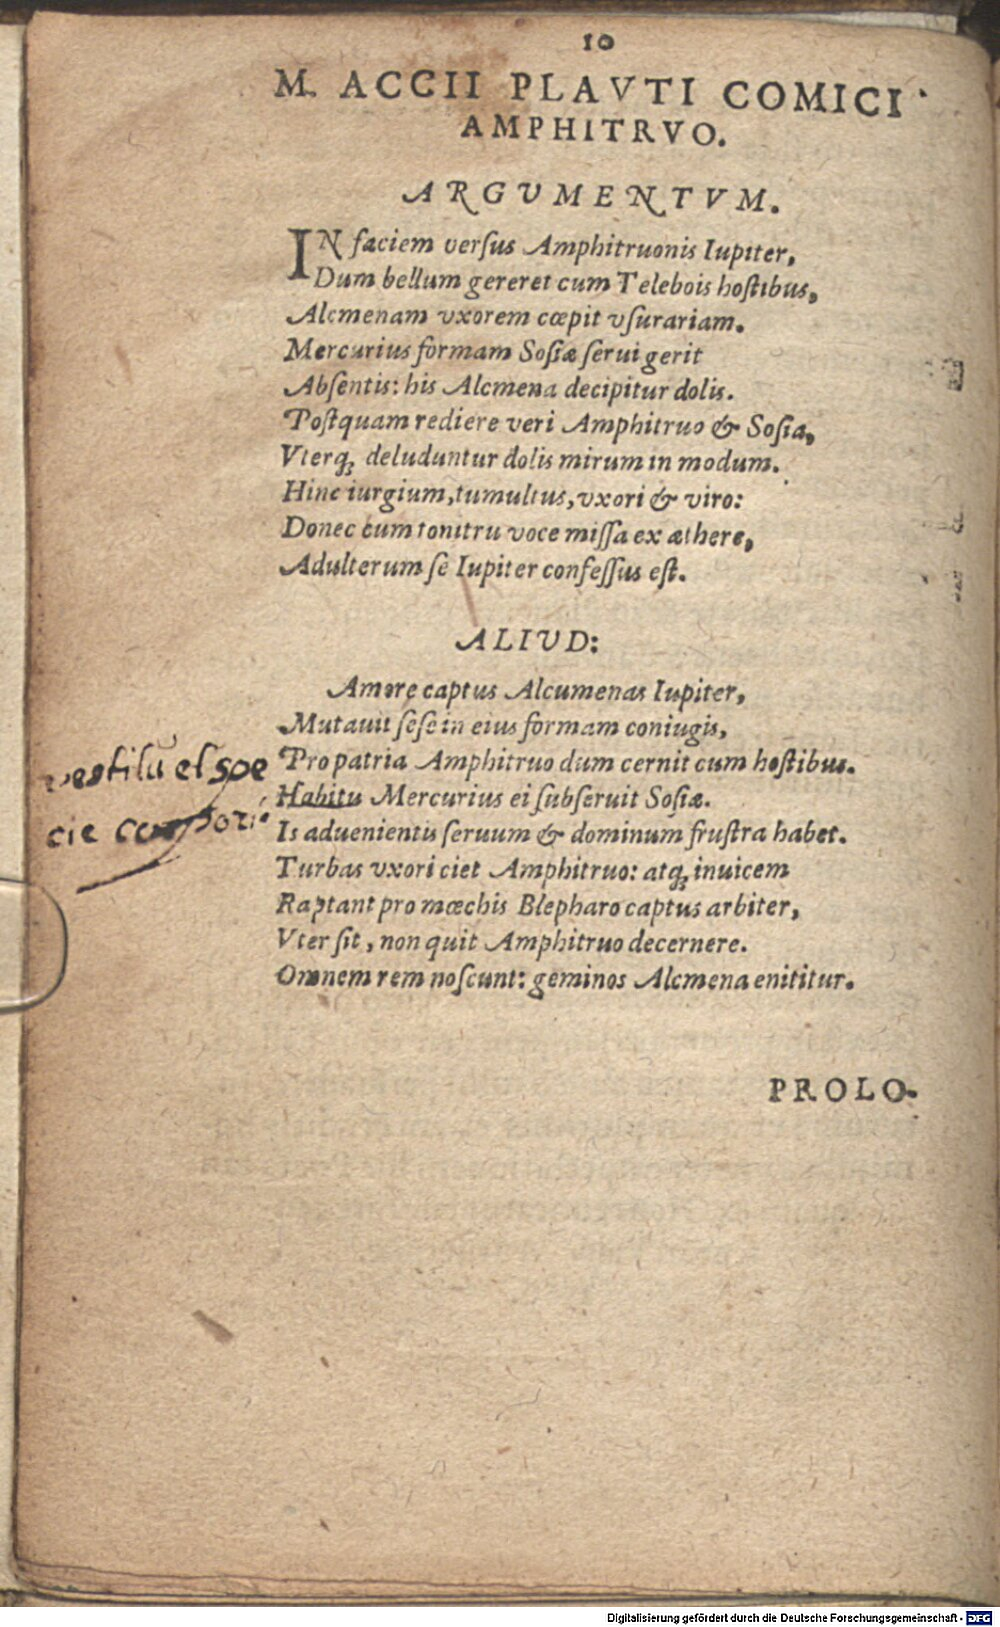 10
M. ACCII PLAVTI COMICI
AMPHITRVO.
ARGVMENTVM.
IN faciem verſus Amphitruonis Iupiter,
Dum bellum gereret cum Telebois hoſtibus,
Alcmenam vxorem cœpit vſurariam.
Mercurius formam Soſiæ ſerui gerit
Abſentis: his Alcmena decipitur dolis.
Poſtquam rediere veri Amphitruo & Soſia,
Vterq; deluduntur dolis mirum in modum.
Hinc iurgium, tumultus, vxori & viro:
Donec cum tonitru voce miſſa ex æthere,
Adulterum ſe Iupiter confeſſus eſt.
ALIVD:
Amore captus Alcumenas Iupiter,
Mutauit ſeſe in eius formam coniugis,
Pro patria Amphitruo dum cernit cum hoſtibus.
Habitu Mercurius ei ſubſeruit Soſiæ.
Is aduenientis ſeruum & dominum fruſtra habet.
Turbas vxori ciet Amphitruo: atq; inuicem
Raptant pro mœchis Blepharo captus arbiter,
Vter ſit, non quit Amphitruo decernere.
Omnem rem noſcunt: geminos Alcmena enititur.
vestitu et spe
cie corpori
PROLO.
Digitalisierung gefördert durch die Deutsche Forschungsgemeinschaft - DFG